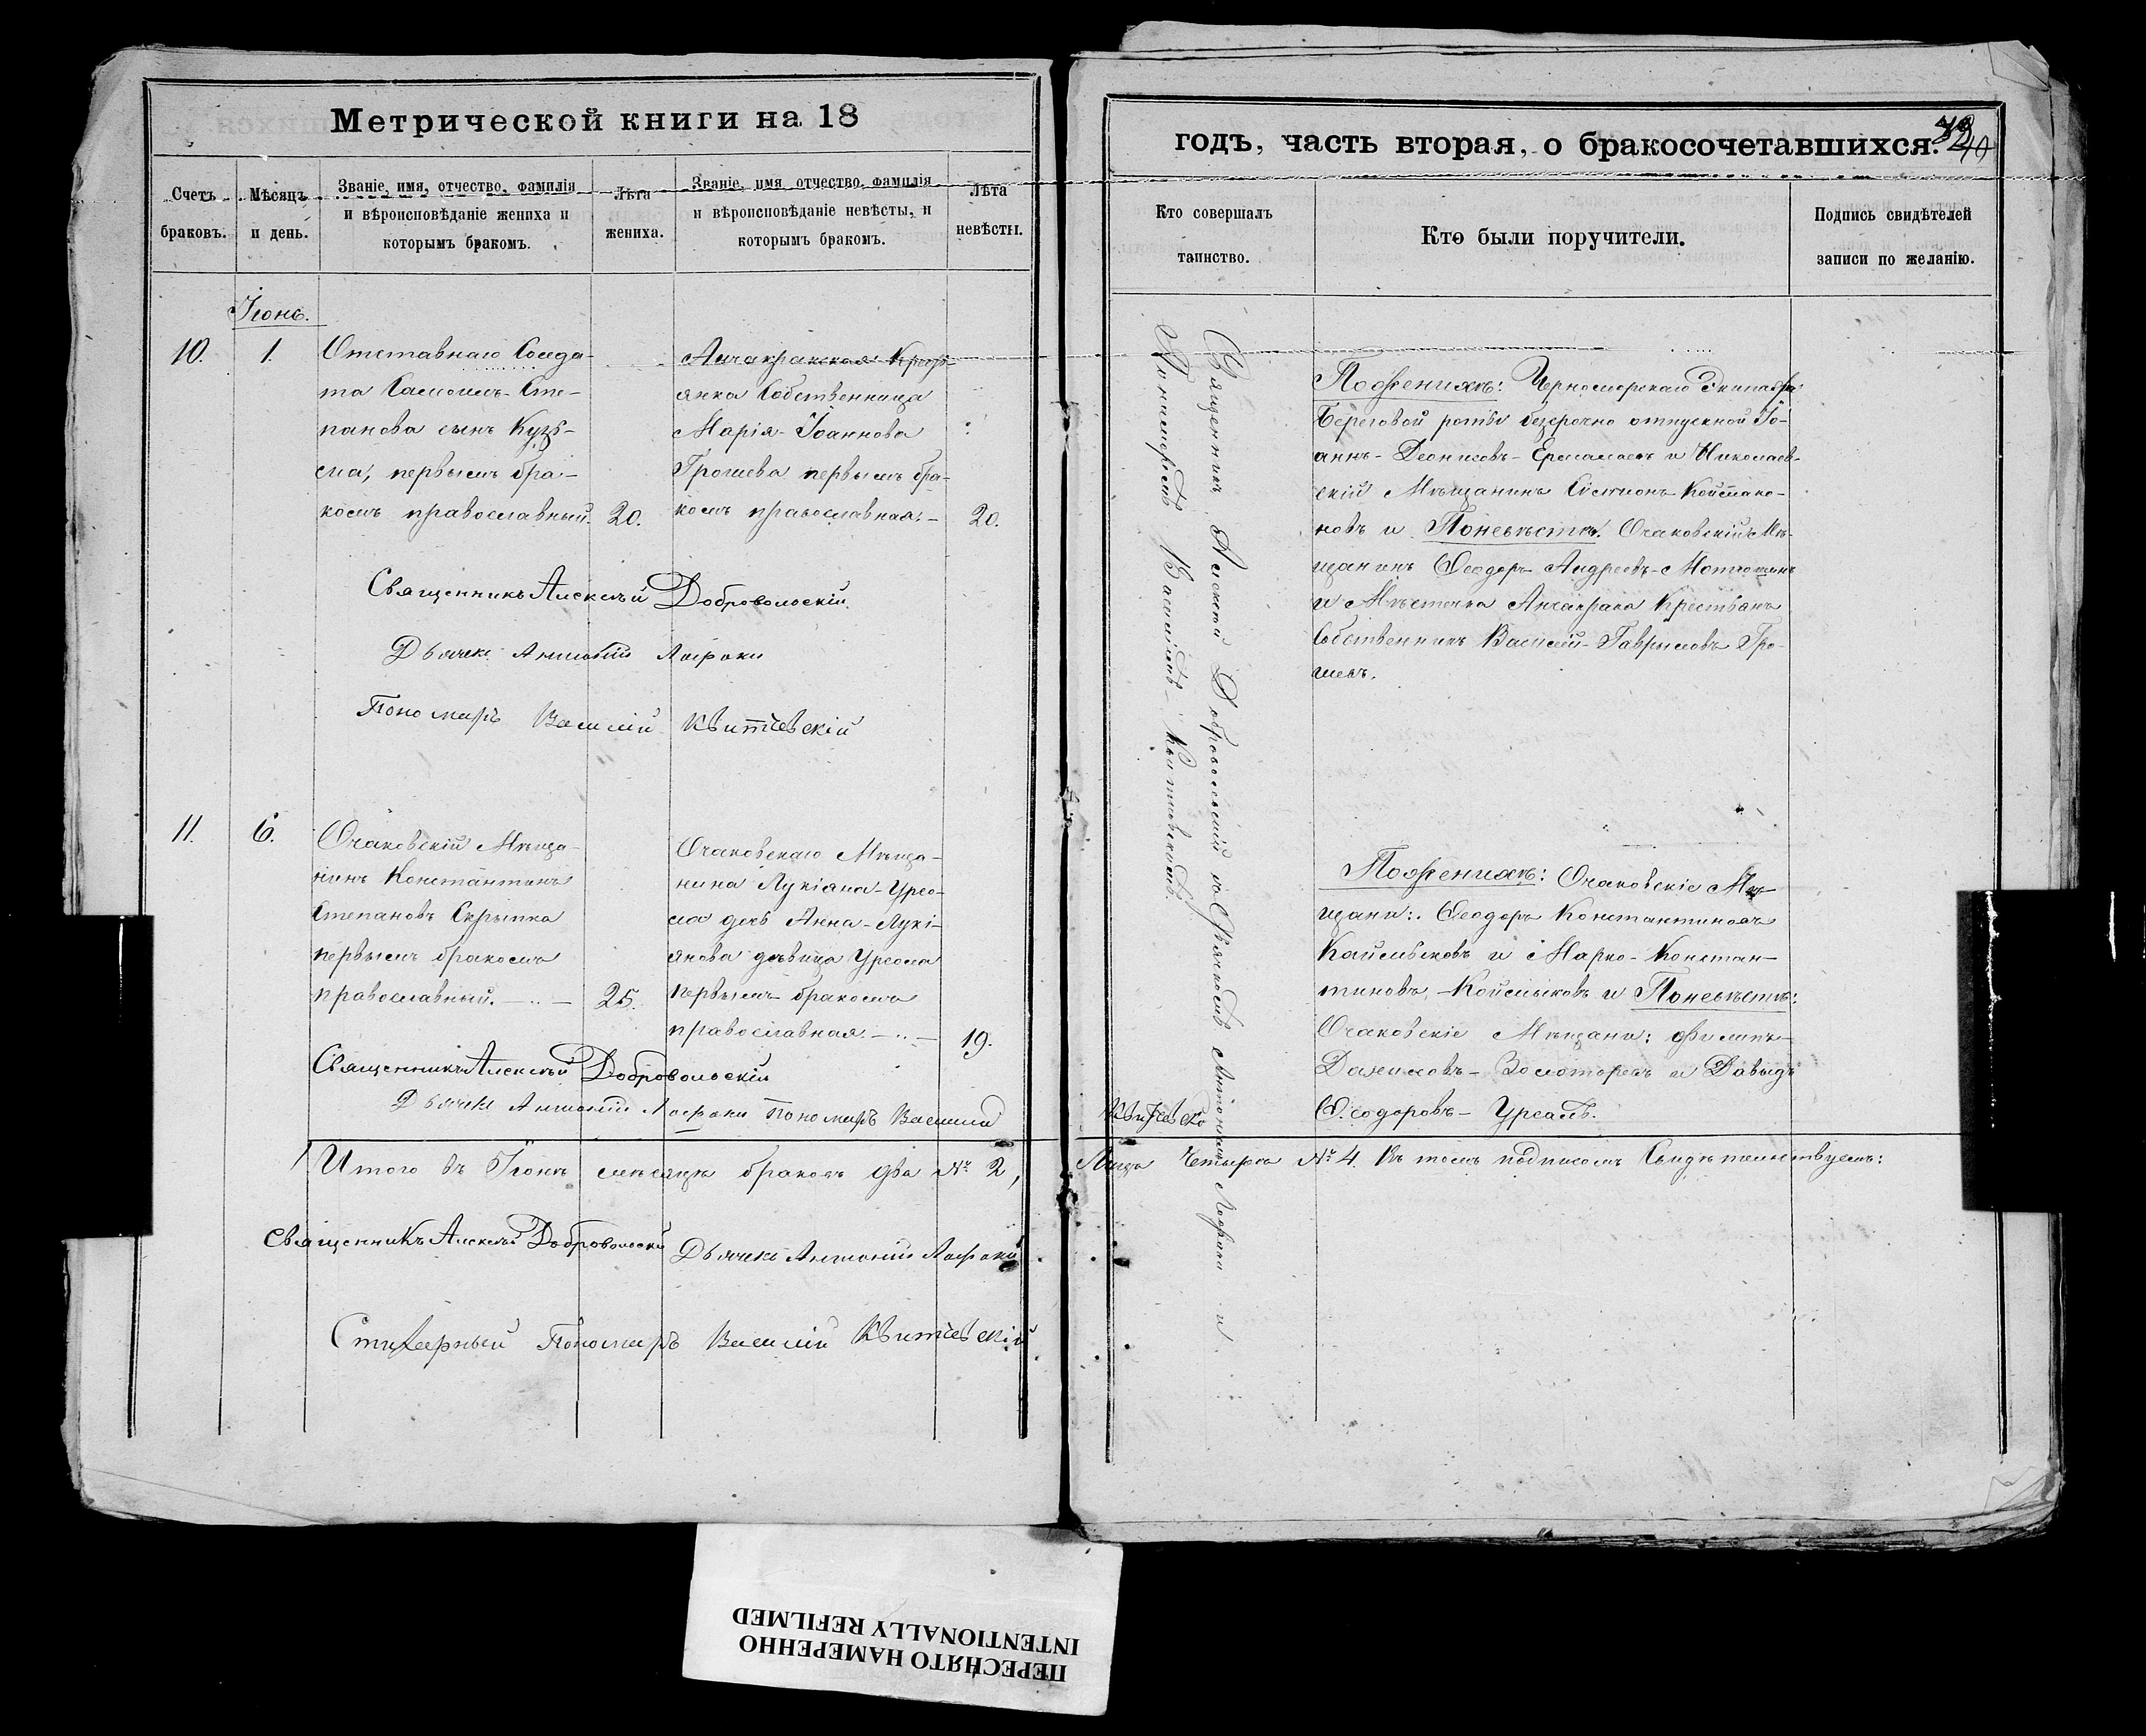 Метрической книги на 18
Счетъ браковъ.
Мѣсяцъ и день.
Званіе, имя, отчество, фамилія и вѣроисповѣданіе жениха и которымъ бракомъ.
Лѣта жениха.
Званіе, имя, отчество, фамилія и вѣроисповѣданіе невѣсты, и которымъ бракомъ.
Лѣта невѣсты.
Іюнь.
10.
1.
Отставнаго Солда-
та Самоилъ Сте-
панова сынъ Кузь-
ма, первымъ бра-
комъ православный.
20.
Анчакракская Кресть-
янка Собственница
Марія Іоаннова
Грошева первымъ бра-
комъ православная.
20.
Священникъ Алексѣй Добровольскій
Дьячекъ Антоній
Пономарь Василій Квитчевскій
11.
6.
Очаковскій Мѣща-
нинъ Константинъ
Степановъ Скрыпка
первымъ бракомъ
православный.
25.
Очаковскаго Мѣща-
нина Лукіяна Урсо-
ла дочь Анна Лукі-
янова дѣвица Урсола
первымъ бракомъ
православная.
19.
Священникъ Алексѣй Добровольскій
Дьячекъ Антоній Пономарь Василій
Итого въ Іюнѣ мѣсяцѣ браковъ два № 2,
Священникъ Алексѣй Добровольскій Дьячекъ Антоній
Стихарный Пономарь Василій Квитчевскій
годъ, часть вторая, о бракосочетавшихся.
40
Кто совершалъ таинство.
Кто были поручители.
Подпись свидѣтелей записи по желанію.
Священникъ Алексѣй Добровольскій съ Дьячкомъ Антоніемъ и
Пономаремъ Василіемъ Квитчевскимъ.
По женихѣ: Черноморскаго Экипажа
Береговой роты безсрочно отпускной Іо-
аннъ и Николаев-
скій Мѣщанинъ
новъ и По невѣстѣ: Очаковскій Мѣ-
щанинъ Ѳеодоръ Андреевъ
и Мѣстечка Анчакрака Крестьянъ
Собственникъ Василій Гавриловъ Гро-
шевъ.
По женихѣ: Очаковскіе Мѣ-
щани: Ѳеодоръ Константиновъ
и Марко Констан-
тиновъ и По невѣстѣ:
Очаковскіе Мѣщани: Филипъ
Даниловъ Золотаревъ и Давыдъ
Ѳеодоровъ Урсалъ.
Лица Четыре № 4. Въ томъ подписомъ Свидѣтельствуемъ:
ПЕРЕСНЯТО НАМЕРЕННО
INTENTIONALLY REFILMED